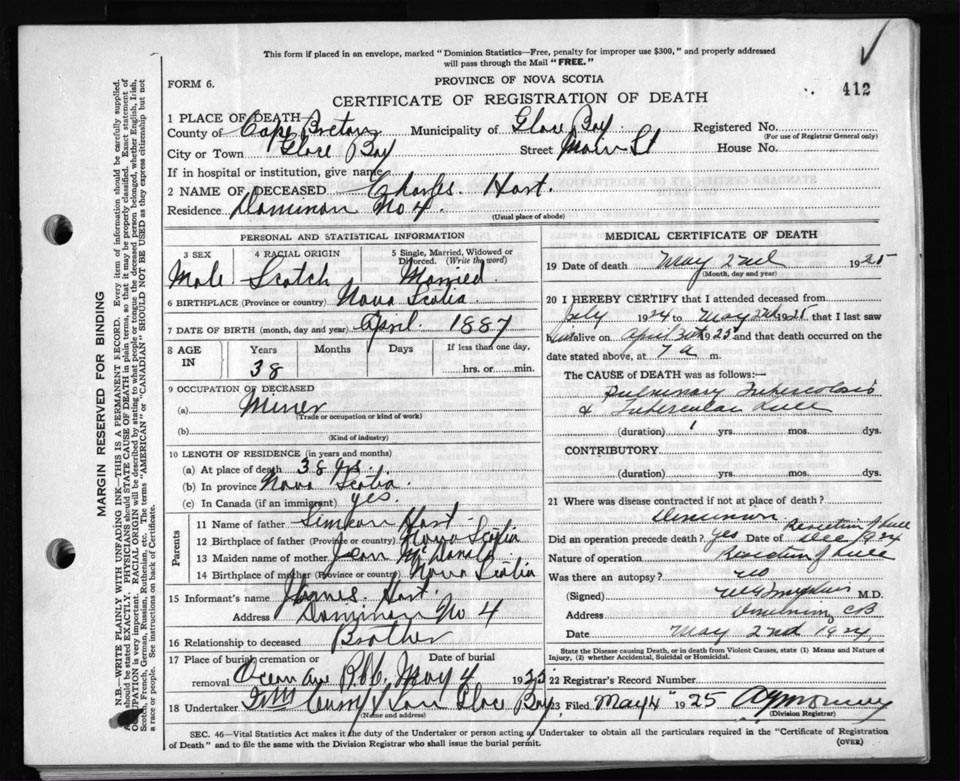 This form if placed in an envelope, marked "Dominion Statistics—Free, penalty for improper use $300," and properly addressed
will pass through the Mail "FREE."
FORM 6.
PROVINCE OF NOVA SCOTIA
412
CERTIFICATE OF REGISTRATION OF DEATH
1 PLACE OF DEATH
County of Cape Breton Municipality of Glace Bay Registered No.
(For use of Registrar General only)
City or Town Glace Bay Street Main St House No.
If in hospital or institution, give name
2 NAME OF DECEASED Charles Hart.
Residence Dominion No 4.
(Usual place of abode)
PERSONAL AND STATISTICAL INFORMATION
3 SEX 4 RACIAL ORIGIN 5 Single, Married, Widowed or
Divorced. (Write the word)
Male Scotch Married.
6 BIRTHPLACE (Province or country) Nova Scotia
7 DATE OF BIRTH (month, day and year) April 1887
8 AGE IN Years Months Days If less than one day,
38 hrs. or min.
9 OCCUPATION OF DECEASED
(a) Miner
(Trade or occupation or kind of work)
(b)
(Kind of industry)
10 LENGTH OF RESIDENCE (in years and months)
(a) At place of death 38 yrs.
(b) In province Nova Scotia
(c) In Canada (if an immigrant) yes.
Parents
11 Name of father Simeon Hart
12 Birthplace of father (Province or country) Nova Scotia
13 Maiden name of mother Jean McDonald
14 Birthplace of mother (Province or country) Nova Scotia
15 Informant's name James Hart.
Address Dominion No 4
16 Relationship to deceased Brother
17 Place of burial, cremation or removal Date of burial
Ocean Ave May 4 1925
18 Undertaker Curry & Son Glace Bay
(Name and address)
MEDICAL CERTIFICATE OF DEATH
19 Date of death May 2nd 1925
(Month, day and year)
20 I HEREBY CERTIFY that I attended deceased from
July 1924 to May 2nd 1925 that I last saw
alive on April 30th 1925 and that death occurred on the
date stated above, at 7 a m.
The CAUSE of DEATH was as follows:—
Pulmonary Tuberculosis
& Tubercular
(duration) 1 yrs. mos. dys.
CONTRIBUTORY
(duration) yrs. mos. dys.
21 Where was disease contracted if not at place of death?
Dominion
Did an operation precede death? yes Date of Dec 1924
Nature of operation Resection of
Was there an autopsy? no
(Signed) M.D.
Address Dominion CB
Date May 2nd 1924,
State the Disease causing Death, or in death from Violent Causes, state (1) Means and Nature of
Injury, (2) whether Accidental, Suicidal or Homicidal.
22 Registrar's Record Number
23 Filed May 4" 1925
(Division Registrar)
SEC. 46—Vital Statistics Act makes it the duty of the Undertaker or person acting as Undertaker to obtain all the particulars required in the "Certificate of Registration
of Death" and to file the same with the Division Registrar who shall issue the burial permit.
(OVER)
MARGIN RESERVED FOR BINDING
N.B.—WRITE PLAINLY WITH UNFADING INK—THIS IS A PERMANENT RECORD. Every item of information should be carefully supplied.
should be stated EXACTLY. PHYSICIANS should STATE CAUSE OF DEATH in plain terms, so that it may be properly classified. Exact statement of
OCCUPATION is very important. RACIAL ORIGIN will be described by stating to what people or tongue the deceased person belonged, whether English, Irish,
Scotch, French, German, Russian, Ruthenian, etc. The terms "AMERICAN" or "CANADIAN" SHOULD NOT BE USED as they express citizenship but not
a race or people. See instructions on back of Certificate.